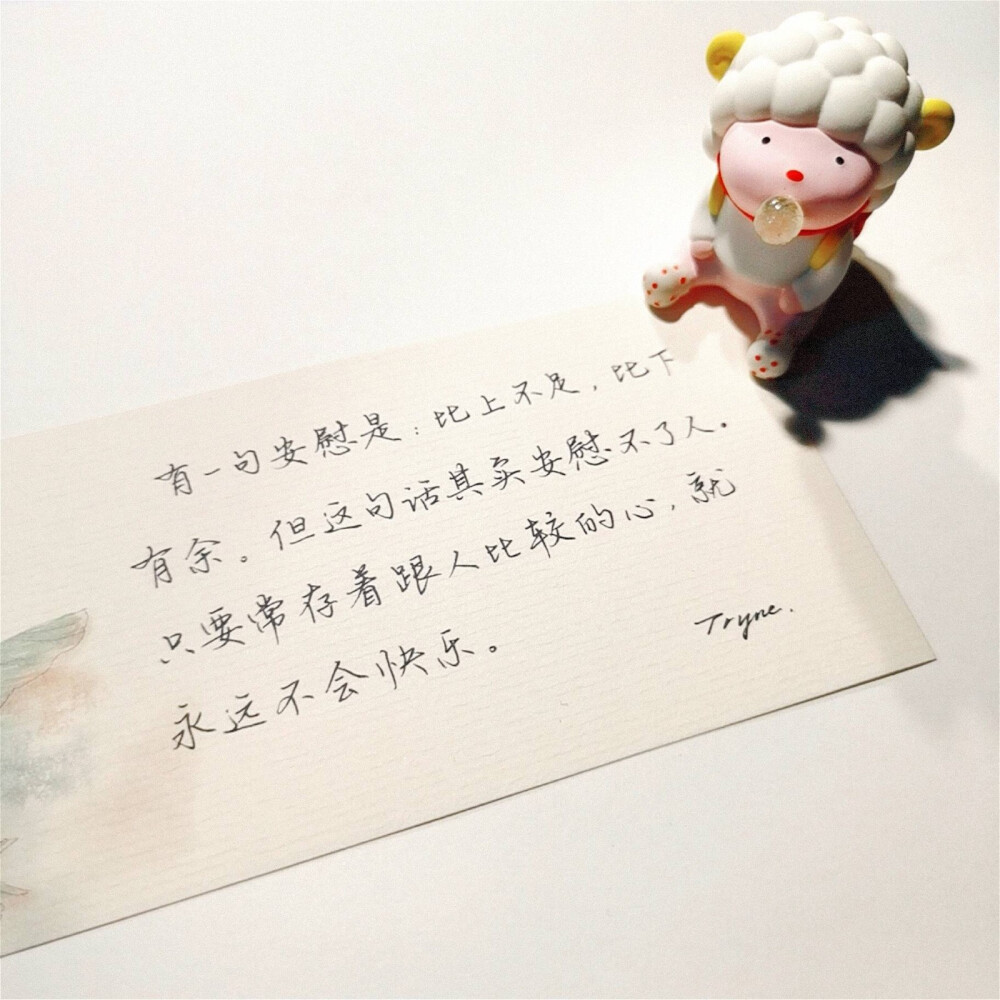 有一句安慰是：比上不足，比下
有余。但这句话其实安慰不了人。
只要常存着跟人比较的心，就
永远不会快乐。
Tryne.